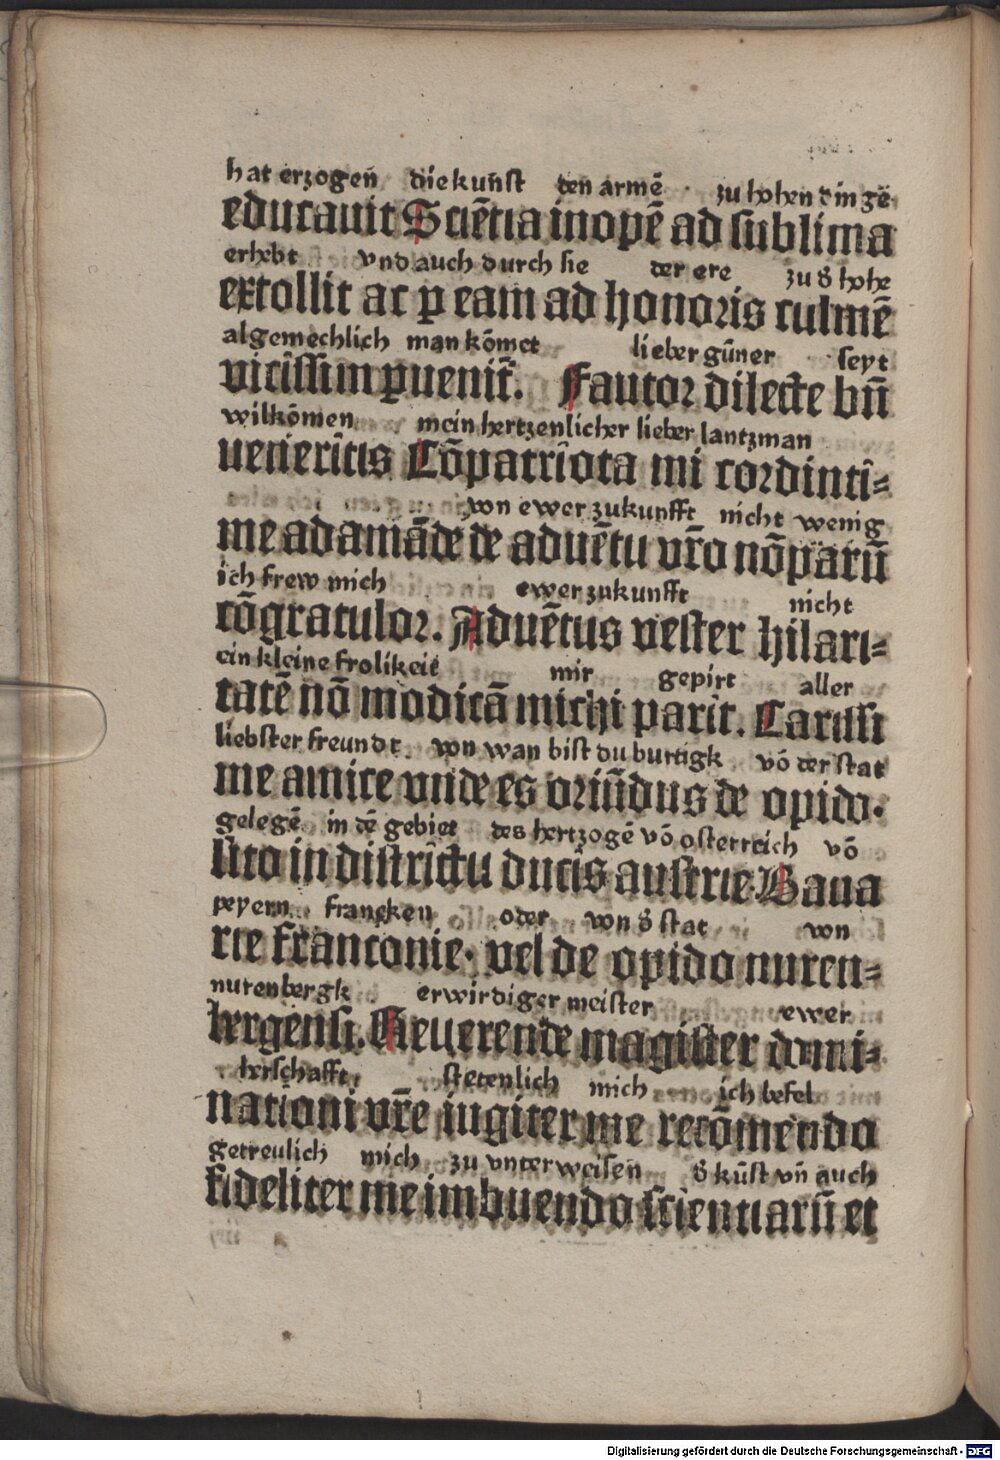 hat erzogen̄ die kun̄st den armē zu hohen dingē
educauit Sciētia inopē ad sublima
erhebt vnd auch durch sie der ere zu d̕ hohe
extollit ac ꝑ eam ad honoris culmē
algemechlich man kōmet lieber gūner seyt
vicissim ꝑuenit̄. Fautor dilecte bn̄
wilkōmen mein hertzenlicher lieber lantzman
ueneritis Cōpatriota mi cordinti⸗
von ewer zukunfft nicht wenig
me adamāde de aduētu vr̄o nōparū
ich frew mich ewer zukunfft nicht
cōgratulor. Aduētus vester hilari⸗
ein kleine frolikeit mir gepirt aller
tatē nō modicā michi parit. Carissi
liebster freundt von wan bist du burtigk vō der stat
me amice vnde es oriūdus de opido.
gelegē in dē gebiet des hertzogē vō osterreich vō
sito in districtu ducis austrie. Baua
peyern francken oder von d̕ stat von
rie franconie. vel de opido nuren⸗
nurenbergk erwirdiger meister ewer
bergensi. Reuerende magister domi⸗
herschafft stetenlich mich ich befel
nationi vr̄e iugiter me recōmendo
getreulich mich zu vnterweisen d̕ kūst vn̄ auch
fideliter me imbuendo scientiarū et
Digitalisierung gefördert durch die Deutsche Forschungsgemeinschaft - DFG